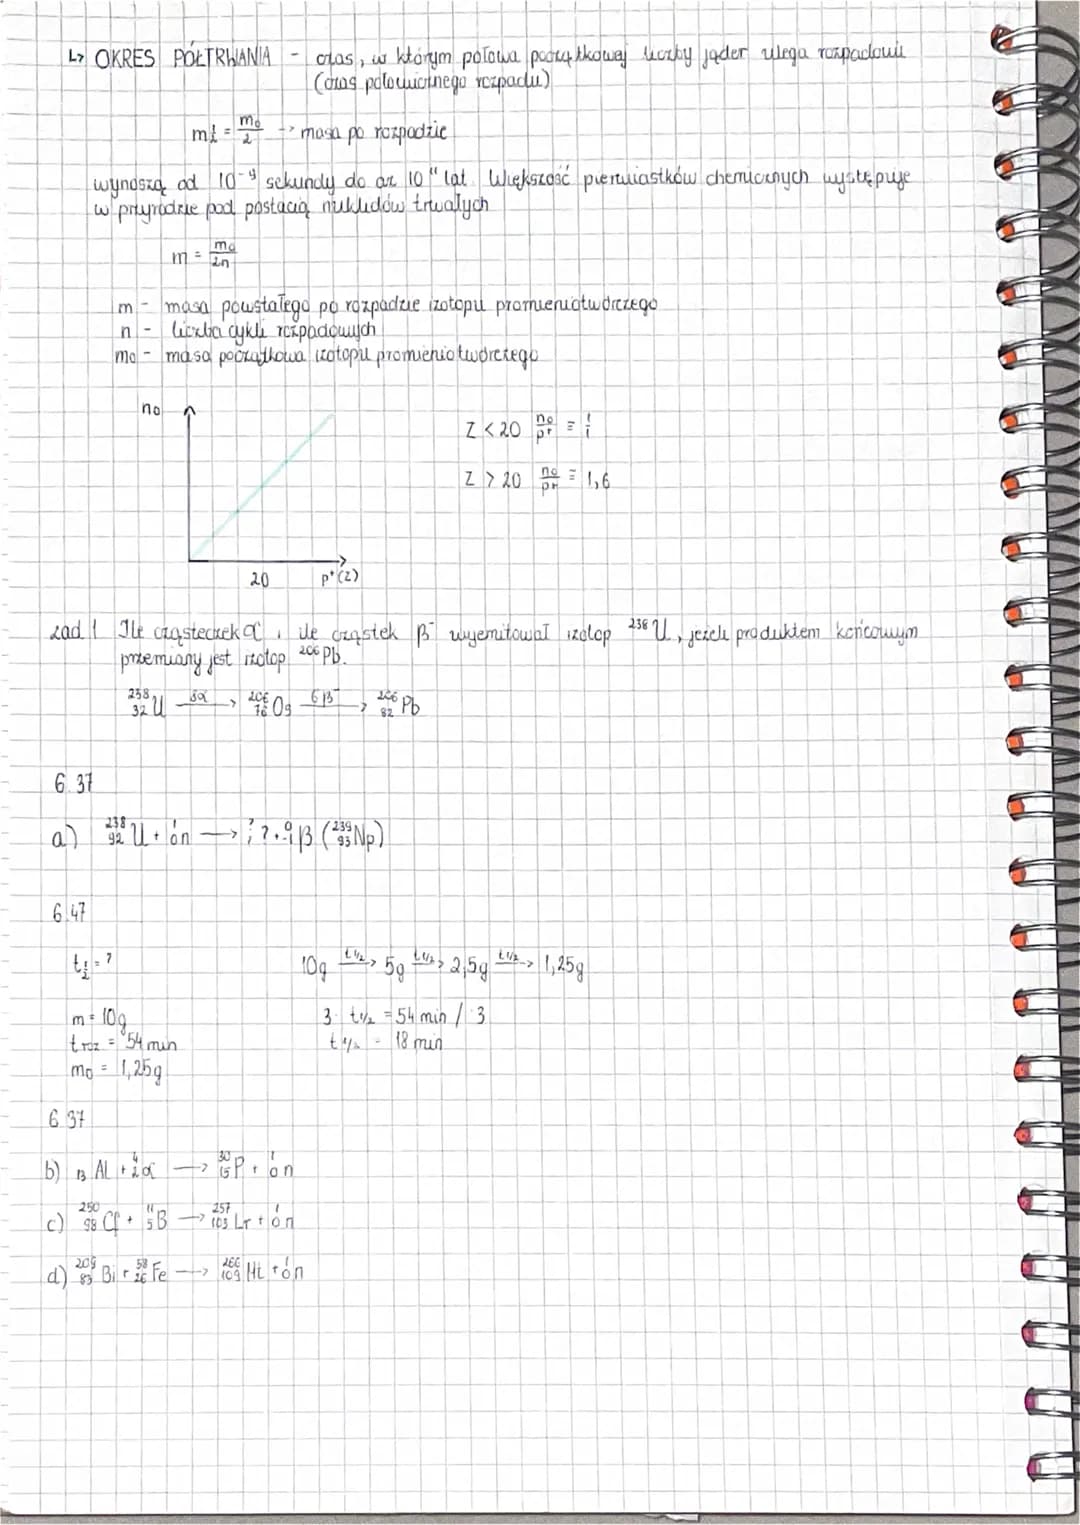 ↳ OKRES PÓŁTRWANIA - czas, w którym połowa początkowej liczby jąder ulega rozpadowi
(czas połowicznego rozpadu)
m½ = m₀/2 -> masa po rozpadzie
wynoszą od 10⁻⁹ sekundy do aż 10¹¹ lat. Większość pierwiastków chemicznych występuje
w przyrodzie pod postacią nuklidów trwałych
m = m₀/2n
m - masa powstałego po rozpadzie izotopu promieniotwórczego
n - liczba cykli rozpadowych
m₀ - masa początkowa izotopu promieniotwórczego
n₀
Z < 20 n₀/p⁺ ≡ 1/1
Z > 20 n₀/p⁺ ≡ 1,6
20 p⁺(Z)
zad 1 Ile cząsteczek α i ile cząstek β⁻ wyemitował izotop ²³⁸U, jeżeli produktem końcowym
przemiany jest izotop ²⁰⁶Pb.
²³⁸₃₂U —8α→ ²⁰⁶₇₆Os —6β⁻→ ²⁰⁶₈₂Pb
6.37
a) ²³⁸₉₂U + ¹₀n → ?? ? + ⁰₋₁β (²³⁹₉₃Np)
6.47
t½ = ? 10g —t½→ 5g —t½→ 2,5g —t½→ 1,25g
m = 10g 3 · t½ = 54 min / : 3
t roz = 54 min t½ = 18 min
m₀ = 1,25g
6.37
b) ₁₃Al + ⁴₂α → ³⁰₁₅P + ¹₀n
c) ²⁵⁰₉₈Cf + ¹¹₅B → ²⁵⁷₁₀₃Lr + ¹₀n
d) ²⁰⁹₈₃Bi + ⁵⁸₂₆Fe → ²⁶⁶₁₀₉Mt + ¹₀n